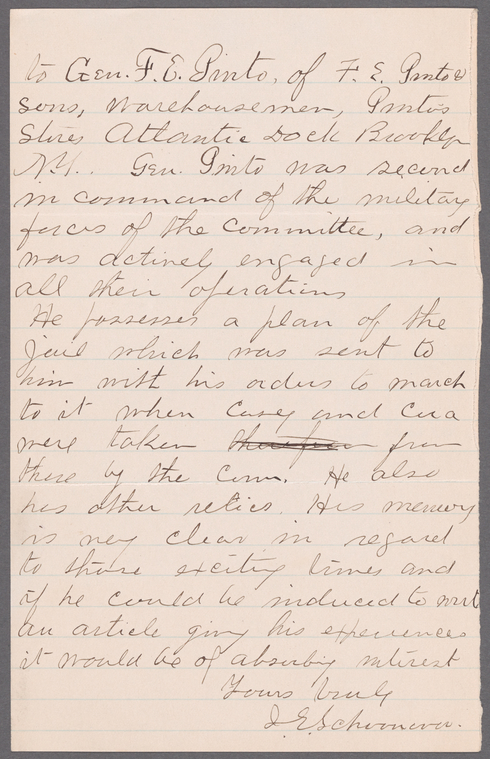 to Gen. F. E. Pinto, of F. E. Pinto &
sons, warehousemen, Pintos
Stores Atlantic Dock Brooklyn
N.Y. Gen. Pinto was second
in command of the military
forces of the committee, and
was actively engaged in
all their operations
He possesses a plan of the
jail which was sent to
him with his orders to march
to it when Casey and Cora
were taken from
there by the Com. He also
has other relics. His memory
is very clear in regard
to those exciting times and
if he could be induced to write
an article giving his experiences
it would be of absorbing interest
Yours truly
J. E. Schoonover.